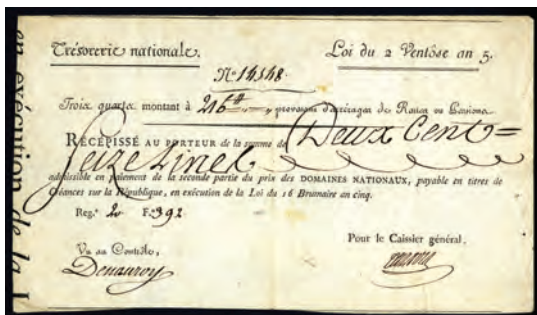 Trésorerie nationale.
Loi du 2 Ventôse an 5.
N.º 14548.
Trois quarts montant à 216 ₶ provenant d'arrérages de Rentes ou Pensions
RÉCÉPISSÉ AU PORTEUR de la somme de Deux Cent
Seize Livres
admissible en paiement de la seconde partie du prix des DOMAINES NATIONAUX, payable en titres de
Créances sur la République, en exécution de la Loi du 16 Brumaire an cinq.
Reg.ᵉ 2 F.º 392
Vu au Contrôle,
Pour le Caissier général,
Denauroy
en exécution de la L